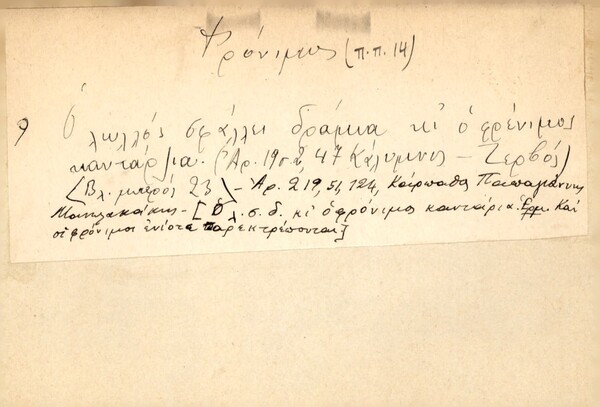 Φρόνιμος (π.π. 14)
9 Ὁ λωλλός σφάλλει δράμια κι' ὁ φρένιμος
καντάρια. (Ἀρ. 19 σ 2 47 Κάλυμνος - Ζερβός)
(Βλ. μωρός 23) - Ἀρ. 219, 51, 124, Κάρπαθος Παπαγιάννης
Μανωλακάκης - [Ὁ λ. σ. δ. κι' ὁ φρόνιμος καντάρια. Ἑρμ. Καί
οἱ φρόνιμοι ἐνίοτε παρεκτρέπονται]